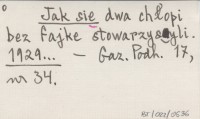 Jak się dwa chłopi
bez fajke stowarzyszyli.
1929... — Gaz. Podh. 17,
nr 34.